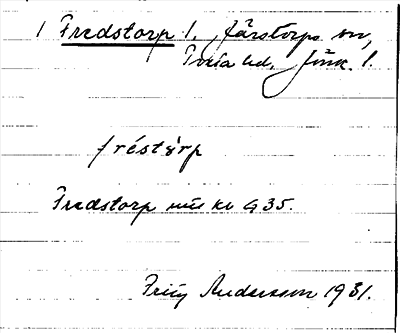 1 Fredstorp 1. Järstorps sn,
Tveta hd. Jönk. l.
fréstörp
Fredstorp
Fritz Andersson 1931.